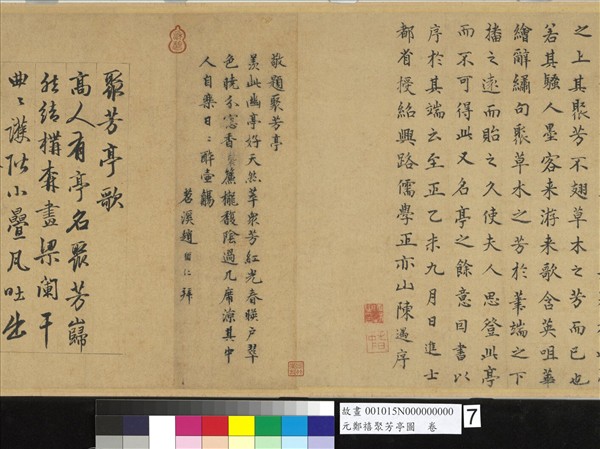 之上其聚芳不翅草木之芳而已也
若其騷人墨客来游来歌含英咀華
繪辭繡句聚草木之芳於筆端之下
播之遠而貽之久使夫人思登此亭
而不可得此又名亭之餘意因書以
序於其端云至正乙未九月日進士
都省授紹興路儒學正亦山陳遘序
敬題聚芳亭
羨此幽亭好天然萃衆芳紅光春暎户翠
色曉分窓香簾攏馥陰過几席涼其中
人自樂日〻醉壺觴
苕溪趙 拜
聚芳亭歌
高人有亭名聚芳巋
然結構森畫梁闌干
曲〻護階小疊凡吐出
故畫 001015N000000000
元鄭禧聚芳亭圖 卷
7